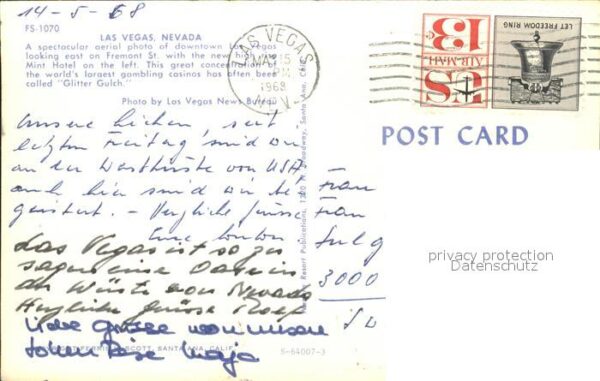 14-5-68
FS-1070
LAS VEGAS, NEVADA
A spectacular aerial photo of downtown Las Vegas
looking east on Fremont St. with the new high
Mint Hotel on the left. This great concentration of
the world's largest gambling casinos has often been
called "Glitter Gulch."
Photo by Las Vegas News Bureau
LAS VEGAS
MAY 15
1968
NEV.
U.S.
AIR MAIL
13c
LET FREEDOM RING
POST CARD
Unsere Lieben, seit
letzten Freitag sind wir
an der Westküste von USA
auch hier sind wir be
geistert. – Herzliche Grüsse
Eure
Las Vegas ist so zu
sagen eine Oase in
der Wüste von Nevada
Herzliche Grüsse
Liebe Grüsse von unserer
tollen Reise Maja
Frau
Frau
3000
Resort Publications,
Broadway, Santa Ana, Cal
SANTA ANA, CALIF.
S-64007-3
privacy protection
Datenschutz